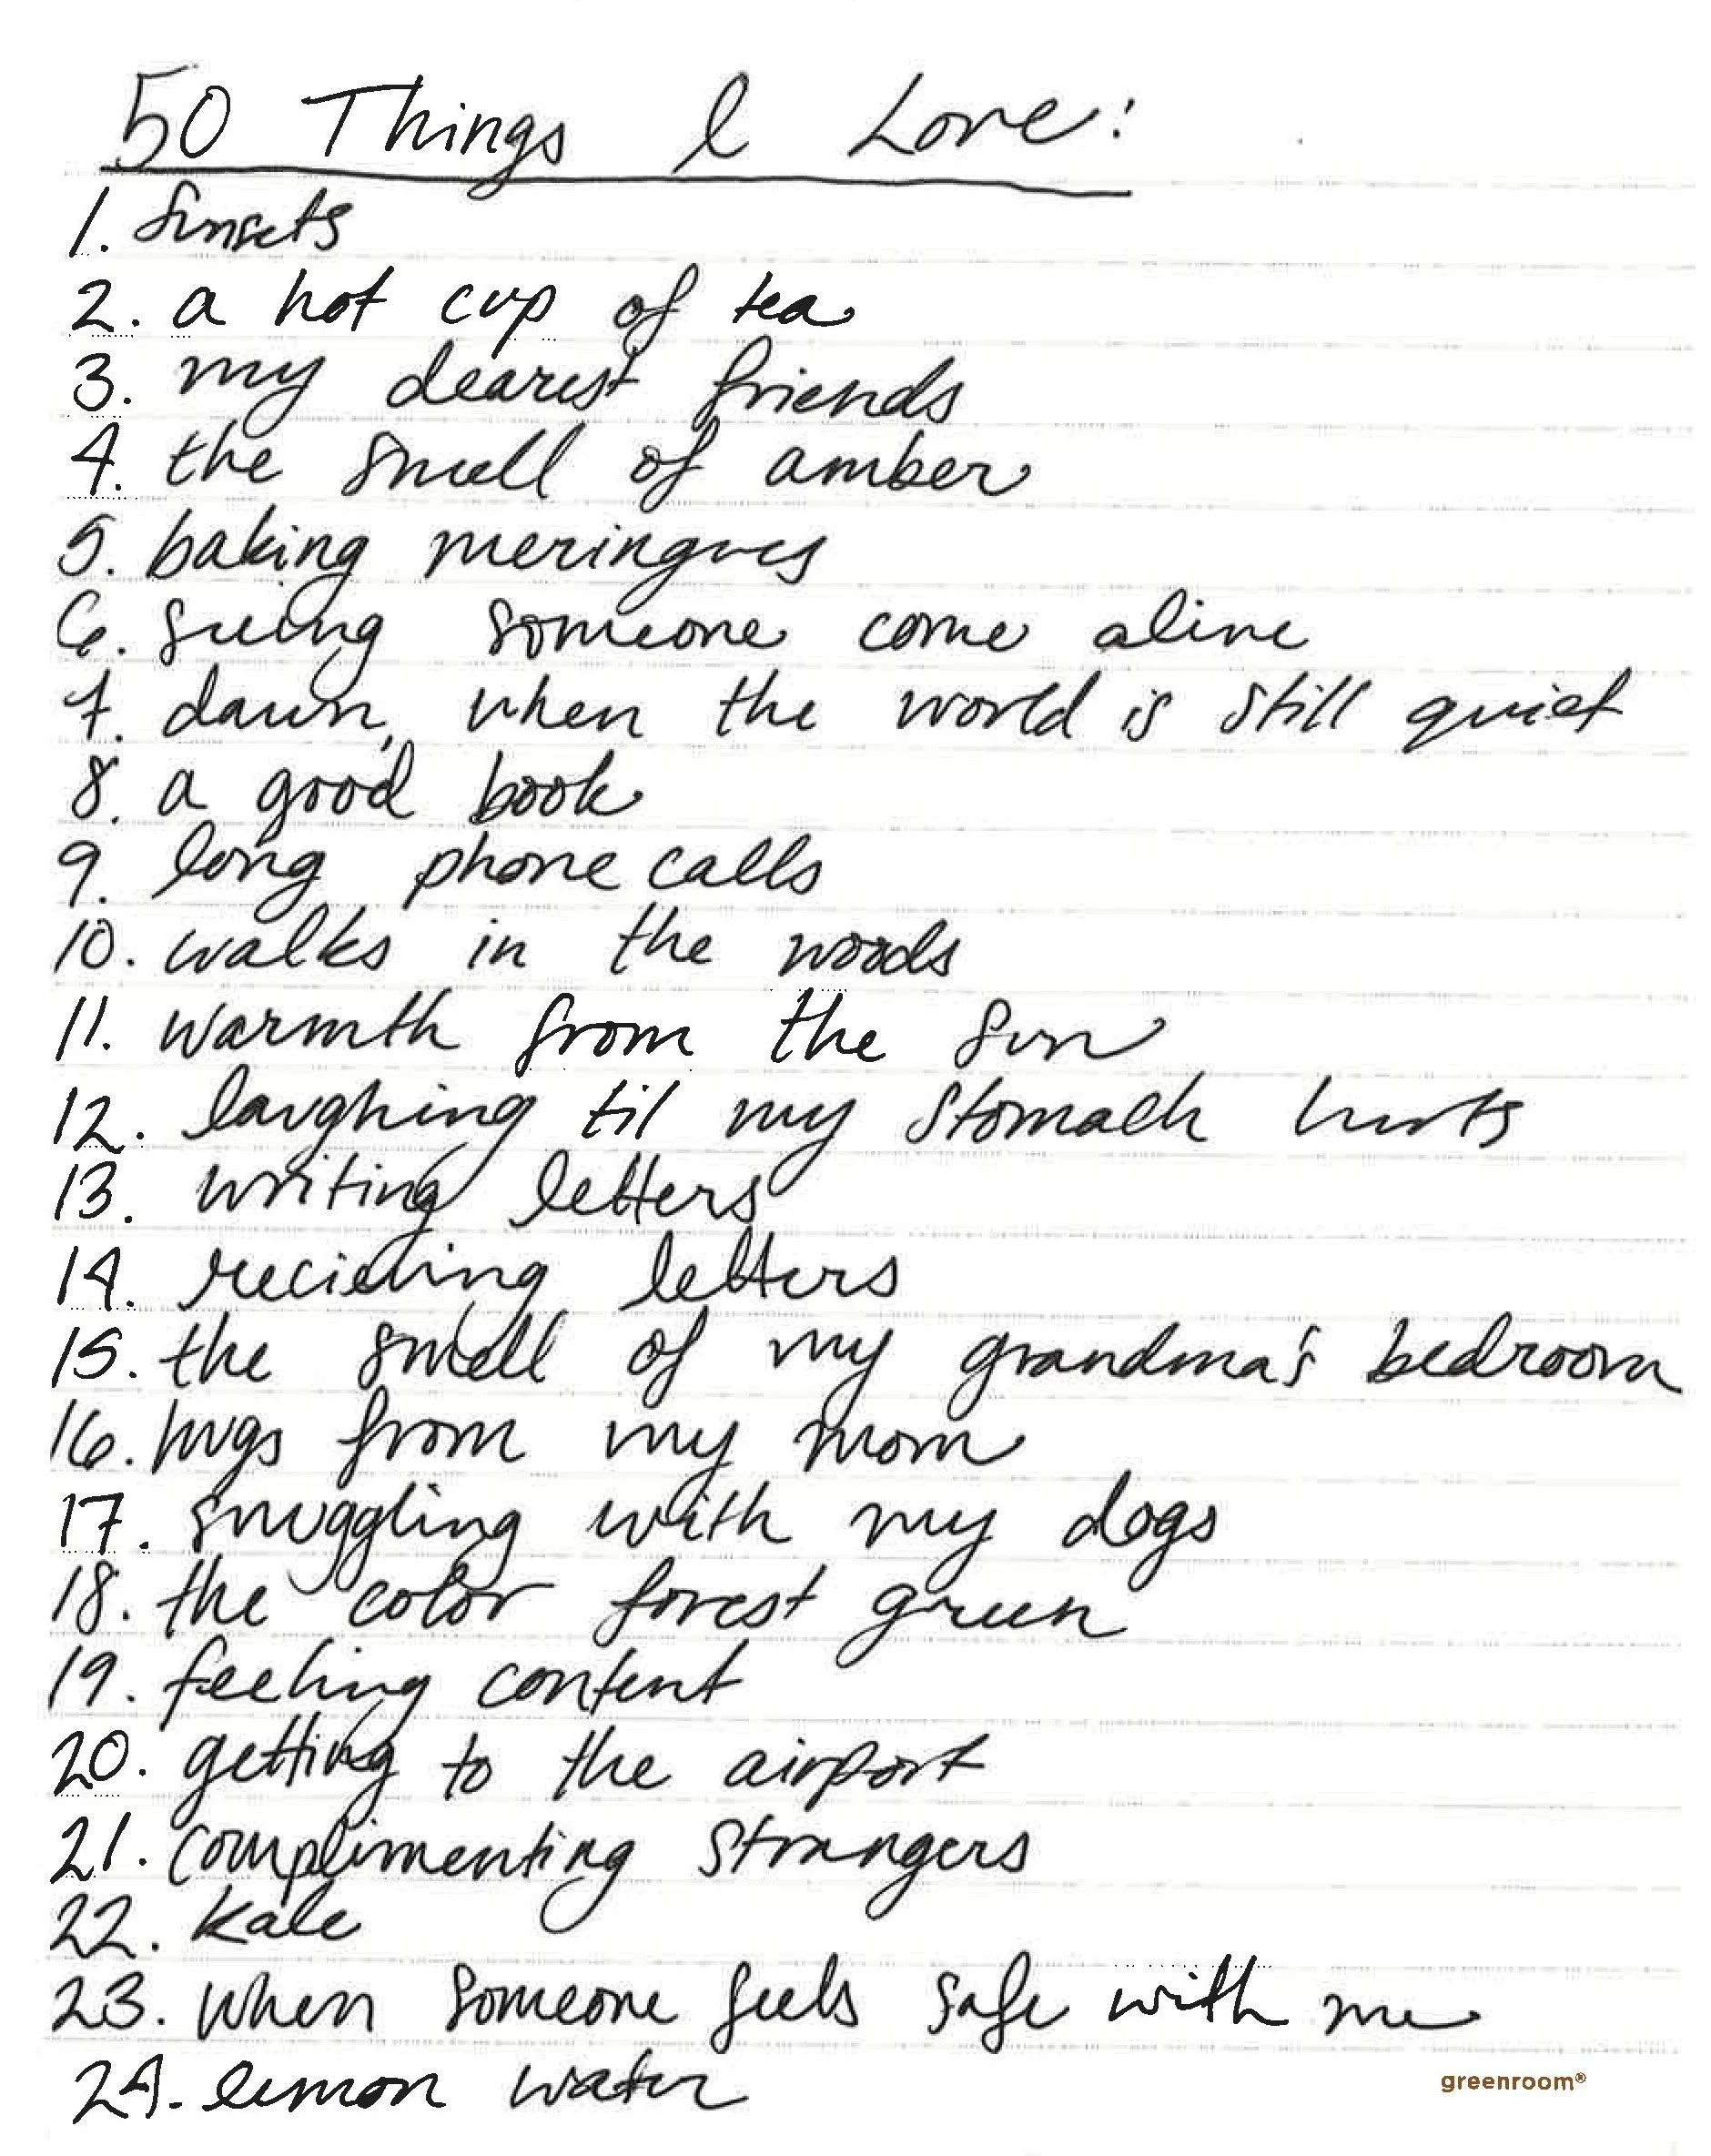 50 Things I Love:
1. Sunsets
2. a hot cup of tea
3. my dearest friends
4. the smell of amber
5. baking meringues
6. seeing someone come alive
7. dawn, when the world is still quiet
8. a good book
9. long phone calls
10. walks in the woods
11. warmth from the sun
12. laughing til my stomach hurts
13. writing letters
14. recieving letters
15. the smell of my grandma's bedroom
16. hugs from my mom
17. snuggling with my dogs
18. the color forest green
19. feeling content
20. getting to the airport
21. complimenting strangers
22. kale
23. when someone feels safe with me
24. lemon water
greenroom®